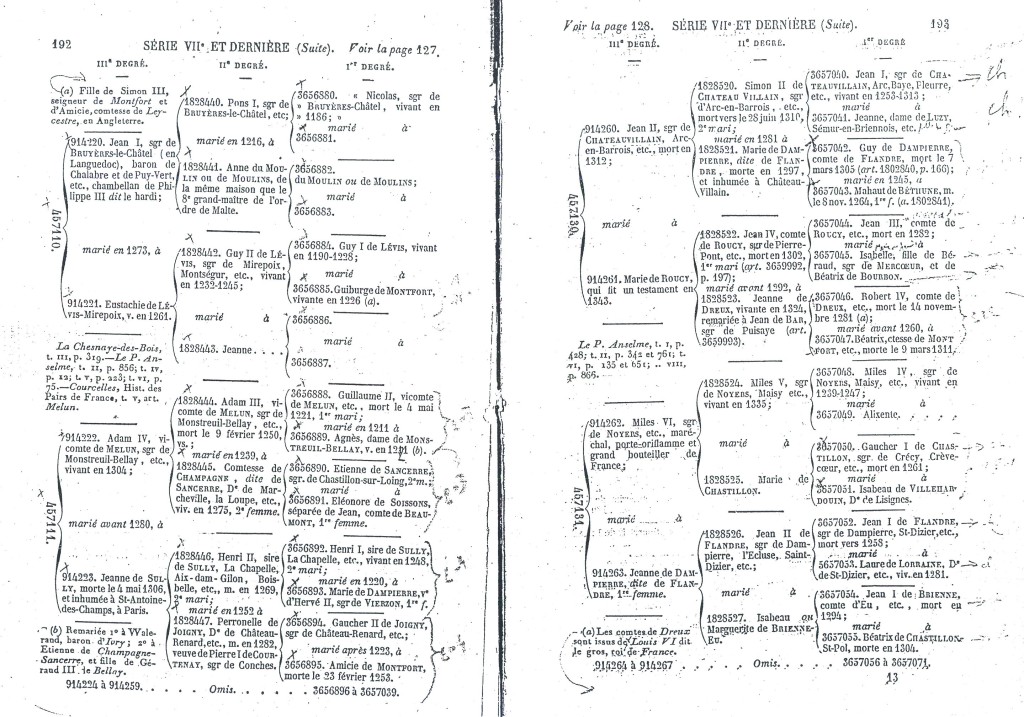 192
SÉRIE VIIe ET DERNIÈRE (Suite). Voir la page 127.
IIIe DEGRÉ.
IIe DEGRÉ.
Ier DEGRÉ.
(a) Fille de Simon III,
seigneur de Montfort et
d'Amicie, comtesse de Ley-
cestre, en Angleterre.
914220. Jean I, sgr de
BRUYÈRES-le-Châtel (en
Languedoc), baron de
Chalabre et de Puy-Vert,
etc., chambellan de Phi-
lippe III dit le hardi;
457110.
marié en 1273, à
914221. Eustachie de LÉ-
VIS-Mirepoix, v. en 1261.
La Chesnaye-des-Bois,
t. III, p. 319.—Le P. An-
selme, t. II, p. 856; t. IV,
p. 12; t. V, p. 223; t. VI, p.
75.—Courcelles, Hist. des
Pairs de France, t. V, art.
Melun.
914222. Adam IV, vi-
comte de MELUN, sgr de
Monstreuil-Bellay, etc.,
vivant en 1304;
457111.
marié avant 1280, à
914223. Jeanne de SUL-
LY, morte le 4 mai 1306,
et inhumée à St-Antoine-
des-Champs, à Paris.
(b) Remariée 1o à Wale-
rand, baron d'Ivry; 2o à
Etienne de Champagne-
Sancerre, et fille de Gé-
raud III le Bellay.
914224 à 914259. . . . . Omis. . . . . 3656896 à 3657039.
1828440. Pons I, sgr de
BRUYÈRES-le-Châtel, etc;
marié en 1216, à
1828441. Anne du MOU-
LIN OU de MOULINS, de
la même maison que le
8e grand-maître de l'or-
dre de Malte.
1828442. Guy II de LÉ-
VIS, sgr de Mirepoix,
Montségur, etc., vivant
en 1232-1245;
marié à
1828443. Jeanne. . . .
1828444. Adam III, vi-
comte de MELUN, sgr de
Monstreuil-Bellay, etc.,
mort le 9 février 1250,
vs.;
marié en 1239, à
1828445. Comtesse de
CHAMPAGNE, dite de
SANCERRE, De de Mar-
cheville, la Loupe, etc.,
viv. en 1275, 2e femme.
1828446. Henri II, sire
de SULLY, La Chapelle,
Aix-dam-Gilon, Bois-
belle, etc., m. en 1269,
2e mari;
marié en 1252 à
1828447. Perronelle de
JOIGNY, De de Château-
Renard, etc., m. en 1282,
veuve de Pierre I de COUR-
TENAY, sgr de Conches.
3656880. « Nicolas, sgr de
» BRUYÈRES-Châtel, vivant en
» 1186; »
marié à
3656881.
3656882.
du MOULIN ou de MOULINS;
marié à
3656883.
3656884. Guy I de LÉVIS, vivant
en 1190-1228;
marié à
3656885. Guiburge de MONTFORT,
vivante en 1226 (a).
3656886.
marié à
3656887.
3656888. Guillaume II, vicomte
de MELUN, etc., mort le 4 mai
1221, 1er mari;
marié en 1211 à
3656889. Agnès, dame de MONS-
TREUIL-BELLAY, v. en 1221 (b).
3656890. Etienne de SANCERRE,
sgr. de Chastillon-sur-Loing, 2e m.;
marié à
3656891. Eléonore de SOISSONS,
séparée de Jean, comte de BEAU-
MONT, 1re femme.
3656892. Henri I, sire de SULLY,
La Chapelle, etc., vivant en 1248,
2e mari;
marié en 1220, à
3656893. Marie de DAMPIERRE, Ve
d'Hervé II, sgr de VIERZON, 1re f.
3656894. Gaucher II de JOIGNY,
sgr de Château-Renard, etc.;
marié après 1223, à
3656895. Amicie de MONTFORT,
morte le 23 février 1253.
Voir la page 128. SÉRIE VIIe ET DERNIÈRE (Suite).
193
IIIe DEGRÉ.
IIe DEGRÉ.
Ier DEGRÉ
914260. Jean II, sgr de
CHATEAUVILLAIN, Arc-
en-Barrois, etc., mort en
1312;
457130.
marié à
914261. Marie de ROUCY,
qui fit un testament en
1343.
Le P. Anselme, t. I, p.
428; t. II, p. 342 et 761; t.
VI, p. 135 et 651; .. VIII,
p. 866.
914262. Miles VI, sgr
de NOYERS, etc., maré-
chal, porte-oriflamme et
grand bouteiller de
France;
457131.
marié à
914263. Jeanne de DAM-
PIERRE, dite de FLAN-
DRE, 1re femme.
(a) Les comtes de Dreux
sont issus de Louis VI dit
le gros, roi de France.
914264 à 914267 . . . . . Omis. . . . . 3657056 à 3657071.
1828520. Simon II de
CHATEAU VILLAIN, sgr
d'Arc-en-Barrois, etc.,
mort vers le 28 juin 1310,
2e mari;
marié en 1281 à
1828521. Marie de DAM-
PIERRE, dite de FLAN-
DRE, morte en 1297,
et inhumée à Château-
Villain.
1828522. Jean IV, comte
de ROUCY, sgr de Pierre-
Pont, etc., mort en 1302,
1er mari (art. 3659992,
p. 197);
marié avant 1292, à
1828523. Jeanne de
DREUX, vivante en 1324,
remariée à Jean de BAR,
sgr de Puisaye (art.
3659993).
1828524. Miles V, sgr
de NOYERS, Maisy etc.,
vivant en 1335;
marié à
1828525. Marie de
CHASTILLON.
1828526. Jean II de
FLANDRE, sgr de Dam-
pierre, l'Ecluse, Saint-
Dizier, etc.;
marié à
1828527. Isabeau ou
Marguerite de BRIENNE-
EU.
3657040. Jean I, sgr de CHA-
TEAUVILLAIN, Arc, Baye, Pleurre,
etc., vivant en 1253-1313;
marié à
3657041. Jeanne, dame de LUZY,
Sémur-en-Briennois, etc.
3657042. Guy de DAMPIERRE,
comte de FLANDRE, mort le 7
mars 1305 (art. 1802840, p. 166);
marié en 1245, à
3657043. Mahaut de BÉTHUNE, m.
le 8 nov. 1264, 1re f. (a. 1802841).
3657044. Jean III, comte de
ROUCY, etc., mort en 1282;
marié à
3657045. Isabelle, fille de Bé-
raud, sgr de MERCŒUR, et de
Béatrix de BOURBON.
3657046. Robert IV, comte de
DREUX, etc., mort le 14 novem-
bre 1281 (a);
marié avant 1260, à
3657047. Béatrix, ctesse de MONT
FORT, etc., morte le 9 mars 1311.
3657048. Miles IV, sgr de
NOYERS, Maisy, etc., vivant en
1239-1247;
marié à
3657049. Alixente. . . . .
3657050. Gaucher I de CHAS-
TILLON, sgr de Crécy, Crève-
cœur, etc., mort en 1261;
marié à
3657051. Isabeau de VILLEHAR-
DOUIN, De de Lisignes.
3657052. Jean I de FLANDRE,
sgr de Dampierre, St-Dizier, etc.,
mort vers 1258;
marié à
5657053. Laure de LORRAINE, De
de St-Dizier, etc., viv. en 1281.
3657054. Jean I de BRIENNE,
comte d'Eu, etc., mort en
1294;
marié à
3657055. Béatrix de CHASTILLON-
St-Pol, morte en 1304.
13